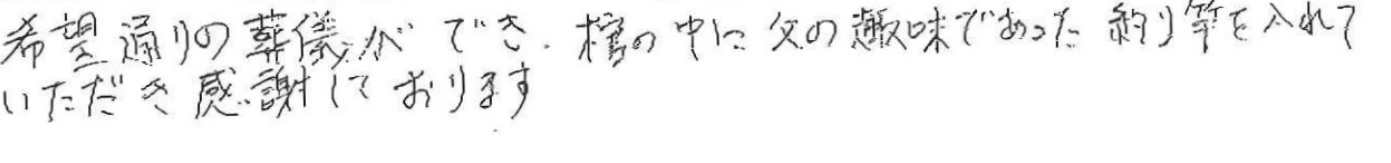 希望通りの葬儀ができ、棺の中に父の趣味であった釣り竿を入れて
いただき感謝しております